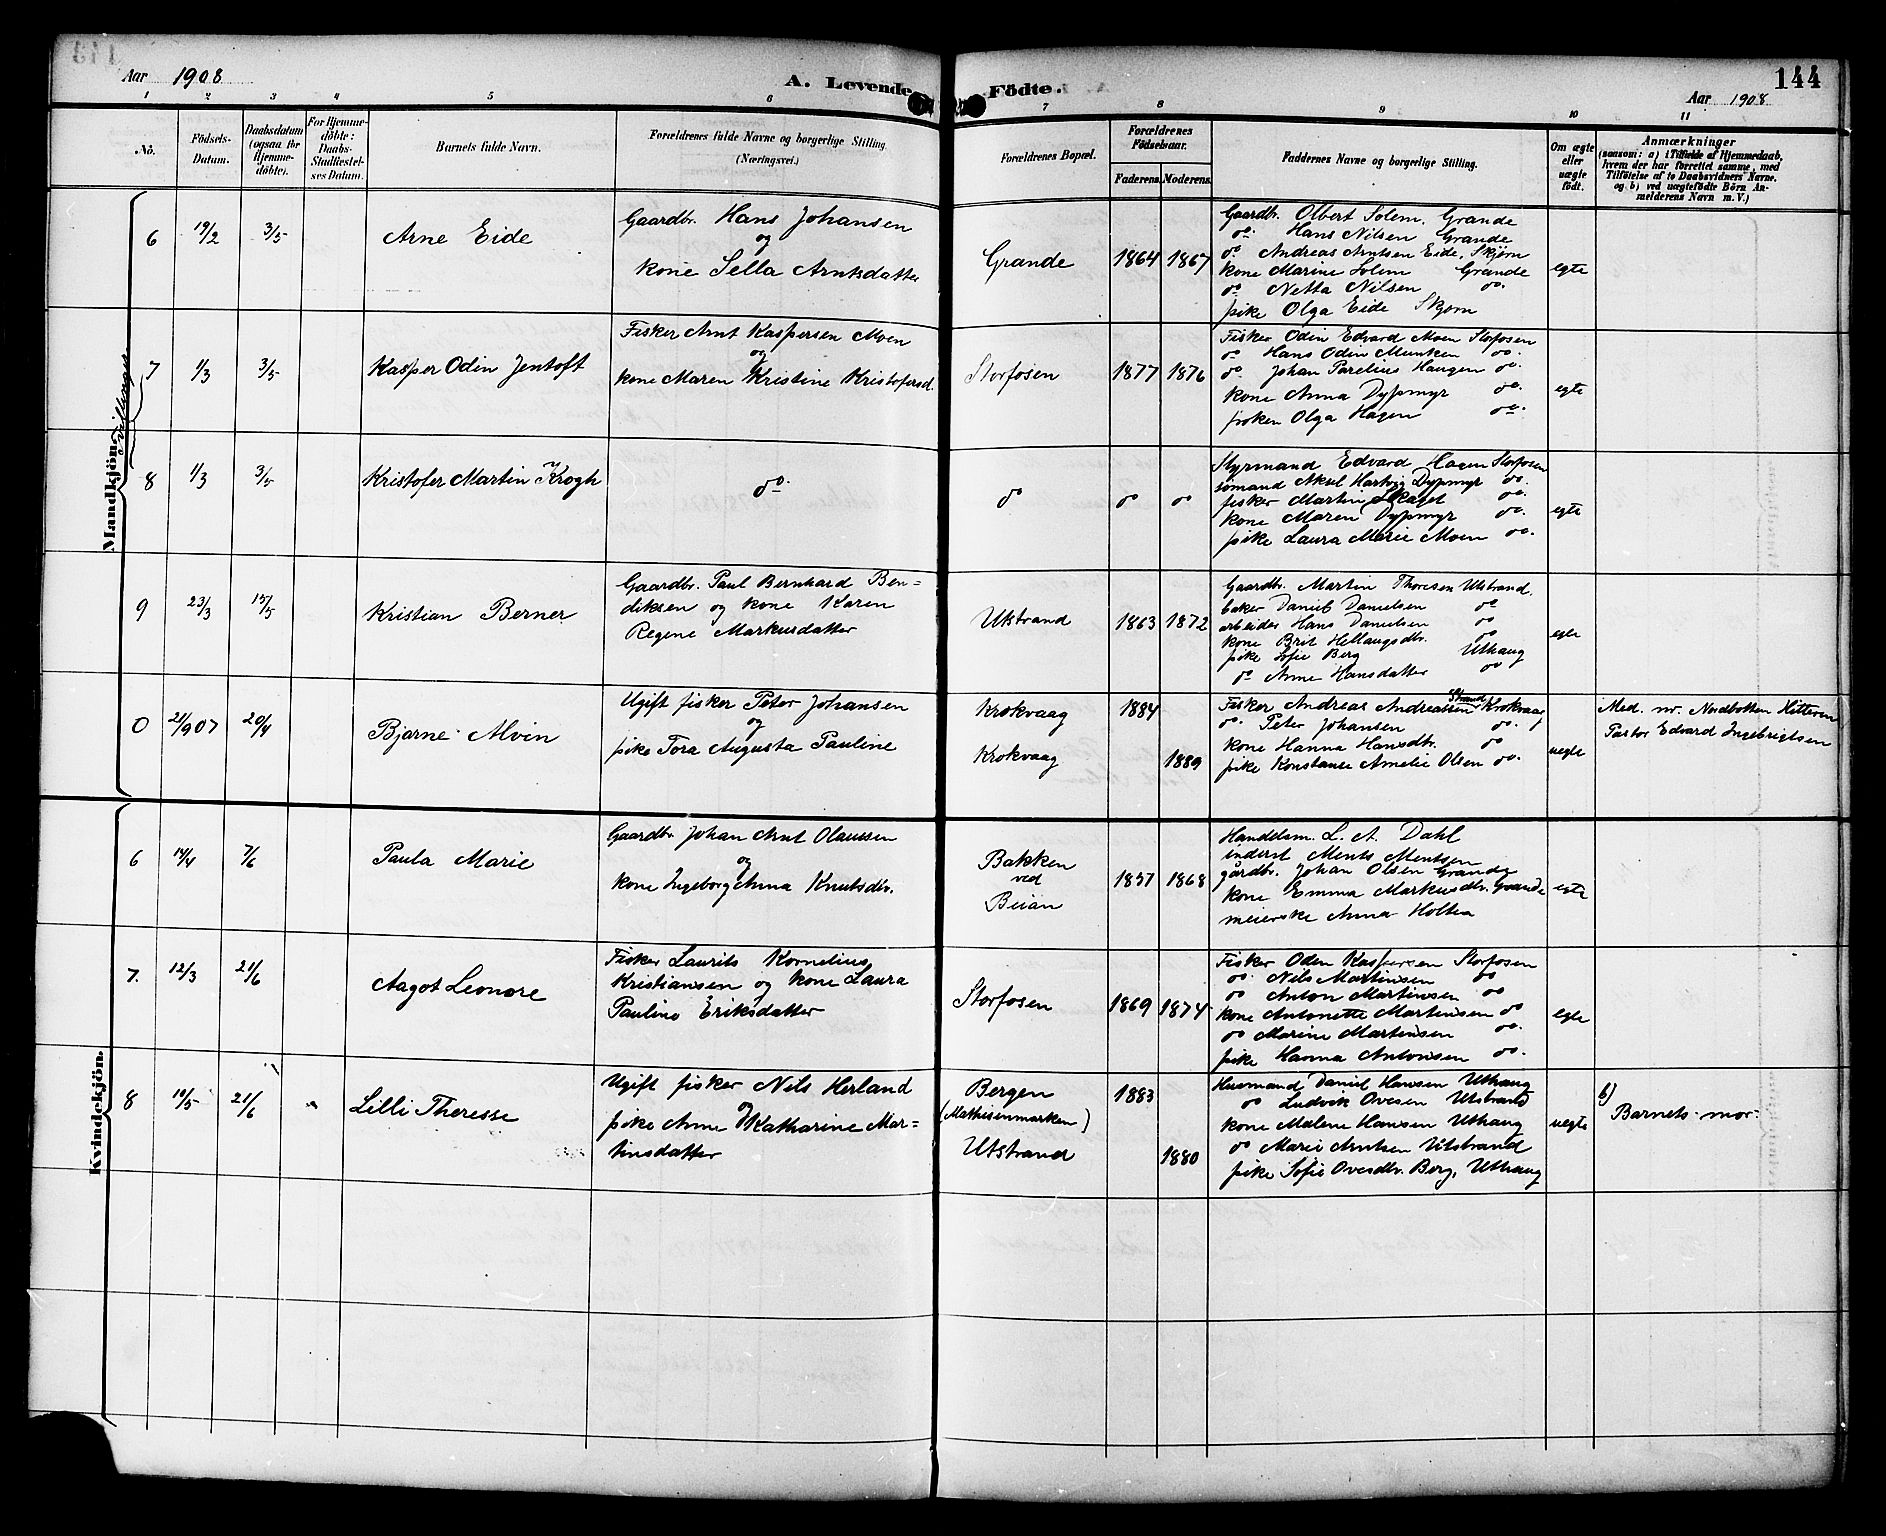 Aar 1908
A. Levende Födte.
144
Aar 1908
1 2 3 4 5 6 7 8 9 10 11
No.
Födsels-Datum.
Daabsdatum (ogsaa for Hjemme-döbte).
For Hjemme-döbte: Daabs-Stadfæstel-ses Datum.
Barnets fulde Navn.
Forældrenes fulde Navne og borgerlige Stilling. (Næringsvei.)
Forældrenes Bopæl.
Forældrenes Födselsaar.
Faderens. Moderens.
Faddernes Navne og borgerlige Stilling.
Om ægte eller uægte födt.
Anmærkninger
(saasom: a) i Tilfælde af Hjemmedaab,
hvem der har forrettet samme, med
Tilföielse af to Daabsvidners Navne.
og b) ved uægtefödte Börn An-
melderens Navn m. V.)
Mandkjön.
tvillinger
6 19/2 3/5 Arne Eide
Gaardbr. Hans Johansen
og
kone Sella Arntsdatter
Grande 1864 1867
Gaardbr. Olbert Solem, Grande
do. Hans Nilsen Grande
do. Andreas Arntsen Eide, Skjørn
kone Marine Solem Grande
do Netta Nilsen do.
pike Olga Eide Skjørn
egte
7 1/3 3/5 Kasper Odin Jentoft
Fisker Arnt Kaspersen Moen
og
kone Maren Kristine Kristofersd.
Storfosen 1877 1876
Fisker Odin Edvard Moen Storfosen
do Hans Odin Munken do.
do. Johan Parelius Haugen do.
kone Anna Dypmyr do.
frøken Olga Hagen do.
egte
8 1/3 3/5 Kristofer Martin Krogh
do.
do do do
Styrmand Edvard Hagen Storfosen
sømand Aksel Hartvig Dypmyr do.
fisker Martin Skaget do.
kone Maren Dypmyr do.
pike Laura Marie Moen do.
egte
9 23/3 15/5 Kristian Berner
Gaardbr. Paul Bernhard Ben-
diksen og kone Karen
Regene Markusdatter
Utstrand 1863 1872
Gaardbr. Martin Thoresen Utstrand.
baker Daniel Danielsen do
arbeider Hans Danielsen do
kone Brit Hellaugsdtr. do
pike Sofie Berg Uthaug
do Anne Hansdatter do
egte
0 21/9 07 20/4 Bjarne Alvin
Ugift fisker Peter Johansen
og
pike Tora Augusta Pauline
Krokvaag 1884
Krokvaag 1889
Fisker Andreas Andreassen Strand Krokvaag
do. Peter Johansen do.
kone Hanna Hansdtr. do
pike Konstanse Amelie Olsen do.
uegte
Med. nr. Nordbotten Hitteren
Pastor Edvard Ingebrigtsen
Kvindekjön.
6 14/4 7/6 Paula Marie
Gaardbr. Johan Arnt Olaussen
og
kone Ingeborg Anna Knutsdtr.
Bakken
ved
Beian
1857 1868
Handelsm. L. A. Dahl
inderst Ments Mentsen
gårdbr. Johan Olsen Grande
kone Emma Markusdtr. Grande
meierske Anna Holten
egte
7. 12/3 21/6 Aagot Leonore
Fisker Laurits Kornelius
Kristiansen og kone Laura
Pauline Eriksdatter
Storfosen 1869 1874
Fisker Oden Kaspersen Storfosen
do. Nils Martinsen do
do Anton Martinsen do
kone Antonette Martinsen do
do Marine Martinsen do.
pike Hanna Antonsen do.
egte
8 10/5 21/6 Lilli Theresse
Ugift fisker Nils Herland
og
pike Anne Katharine Mar-
tinsdatter
Bergen
(Mathisenmarken)
Utstrand
1883
1880
Husmand Daniel Hansen Uthaug
do Ludvik Ovesen Utstrand
kone Malene Hansen Uthaug
do Marie Arntsen Utstrand
pike Sofie Ovesdtr. Berg, Uthaug
uegte
b)
Barnets mor